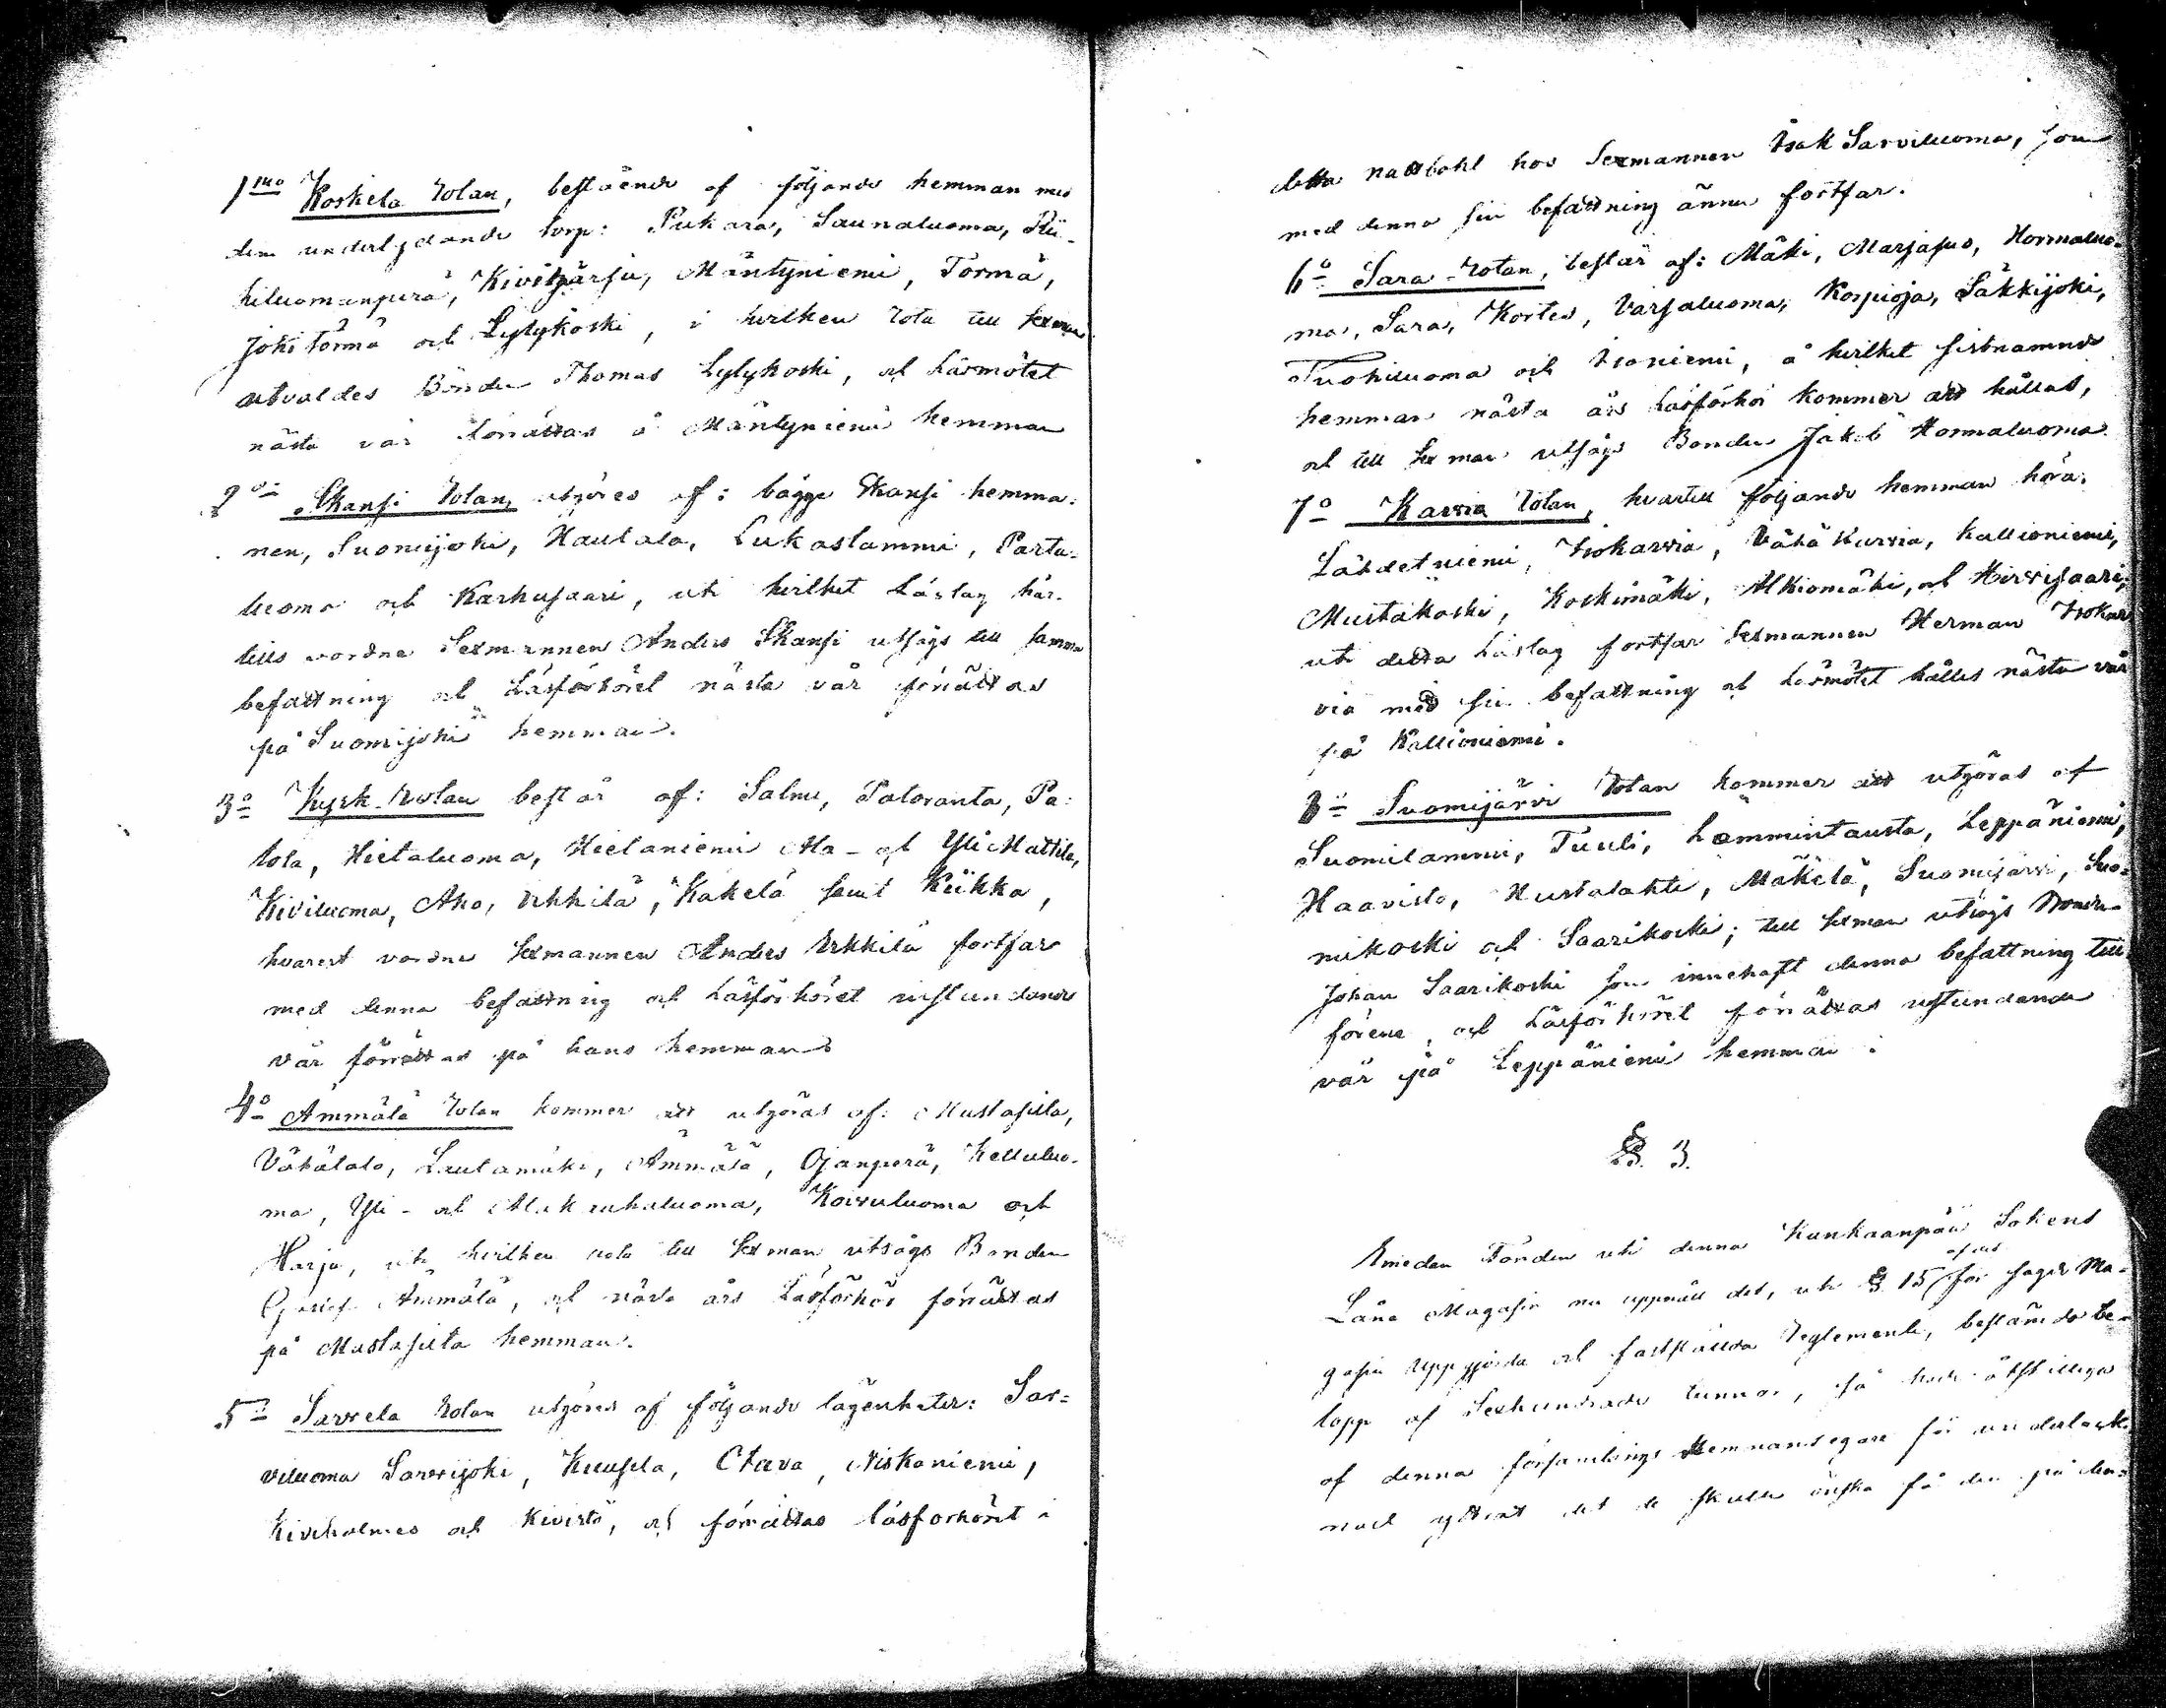 1mo Koskela Rotan, bestående af följande hemman med
dem underlydande torp: Pukara, Saunaluoma, Rii-
hiluomanperä, Kivihärju, Mäntyniemi, Törmä,
Jokitörmä och Lylykoski, i hvilken Rota till Sexman
utvaldes Bonden Thomas Lylykoski, och Läsmötet
nästa vår förrättas å Mäntyniemi hemman
2o Skansi Rotan, utgöres af: bägge Skansi hemma-
nen, Suomijoki, Hautala, Lukaslammi, Parta-
luoma och Karhusaari, uti hvilket Läslag här-
tills vordne Sexmannen Anders Skansi utsågs till samma
befattning och Läsförhöret nästa vår förrättas
på Suomijoki hemman.
3o Kyrk-Rotan består af: Salmi, Paloranta, Pa-
tola, Hietaluoma, Hietaniemi Ala- och Yli Mattila,
Kiviluoma, Aho, Erkkilä, Käkelä samt Kiikka,
hvarest vordne Sexmannen Anders Erkkilä fortfar
med denna befattning och Läsförhöret instundande
vår förrättas på hans hemman
4o Ämmälä Rotan kommer att utgöras af: Mustasilta,
Vähätalo, Lautamäki, Ämmälä, Ojanperä, Kelluluo-
ma, Yli- och Ala Kauhaluoma, Koivuluoma och
Harju, uti hvilken rota till Sexman utsågs Bonden
Gustaf Ämmälä, och nästa års Läsförhör förrättas
på Mustasilta hemman.
5o Sarvela Rotan utgöres af följande lägenheter: Sar-
viluoma Sarvijoki, Kuusela, Otava, Niskaniemi,
Kiviholmes och Kivistö, och förrättas läsförhöret i
detta nattbohl hos Sexmannen Isak Sarviluoma, som
med denna sin befattning ännu fortfar.
6o Sara-Rotan, består af: Mäki, Marjasuo, Hormaluo-
ma, Sara, Kortes, Varsaluoma, Korpioja, Säkkijoki,
Tuohiluoma och Isoniemi, å hvilket sistnämnde
hemman nästa års Läsförhör kommer att hållas,
och till Sexman utsågs Bonden Jakob Hormaluoma.
7o Karvia Rotan, hvartill följande hemman höra:
Lähdetniemi, Isokarvia, Vähäkarvia, Kallioniemi,
Mustakoski, Koskimäki, Alkiomäki, och Hirvisaari;
uti detta Läslag fortfar Sexmannen Herman Isokar
via med sin befattning och Läsmötet hålles nästa vår
på Kallioniemi.
8o Suomijärvi Rotan kommer att utgöras af
Suomilammi, Tuuli, Lammintausta, Leppäniemi,
Haavisto, Hustalahti, Mäkelä, Suomijärvi, Suo-
mikoski och Saarikoski; till Sexman utsågs Bonden
Johan Saarikoski som innehaft denna befattning till
förene, och Läsförhöret förrättas instundande
vår på Leppäniemi hemman.
§ 3.
Emedan Fonden uti denna Kankaanpää Sokens
Låne Magasin nu uppnått det, uti § 15 af det för sagde Ma-
gasin uppgjorda och fastställda Reglemente, bestämda be-
lopp af Sexhundrade tunnor, så hade åtskillige
af denna församlings Hemmansegare för underteck-
nad yttrat det de skulle önska få den på den-